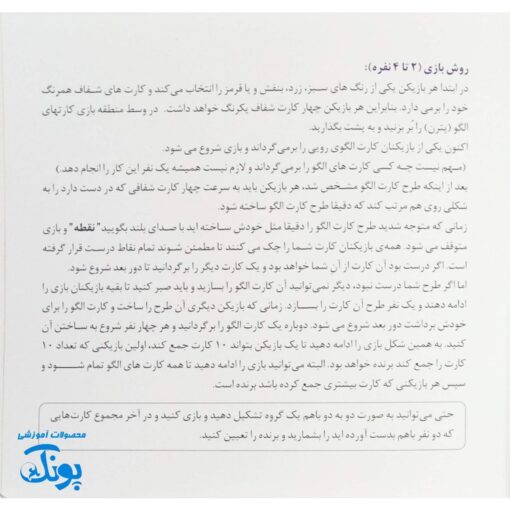 روش بازی (۲ تا ۴ نفره):
در ابتدا هر بازیکن یکی از رنگ های سبز، زرد، بنفش و یا قرمز را انتخاب می‌کند و کارت های شفاف همرنگ
خود را برمی دارد. بنابراین هر بازیکن چهار کارت شفاف یکرنگ خواهد داشت. در وسط منطقه بازی کارتهای
الگو (پترن) را بُر بزنید و به پشت بگذارید.
اکنون یکی از بازیکنان کارت الگوی رویی را برمی‌گرداند و بازی شروع می شود.
(مهم نیست چه کسی کارت های الگو را برمی گرداند و لازم نیست همیشه یک نفر این کار را انجام دهد.)
بعد از اینکه طرح کارت الگو مشخص شد، هر بازیکن باید به سرعت چهار کارت شفافی که در دست دارد را به
شکلی روی هم مرتب کند که دقیقا طرح کارت الگو ساخته شود.
زمانی که متوجه شدید طرح کارت الگو را دقیقا مثل خودش ساخته اید با صدای بلند بگویید "نقطه" و بازی
متوقف می شود. همه‌ی بازیکنان کارت شما را چک می کنند تا مطمئن شوند تمام نقاط درست قرار گرفته
است. اگر درست بود آن کارت از آنِ شما خواهد بود و یک کارت دیگر را برگردانید تا دور بعد شروع شود.
اما اگر طرح شما درست نبود، دیگر نمی‌توانید آن کارت الگو را بسازید و باید صبر کنید تا بقیه بازیکنان بازی را
ادامه دهند و یک نفر طرح آن کارت را بسازد. زمانی که بازیکن دیگری آن طرح را ساخت و کارت الگو را برای
خودش برداشت دور بعد شروع می شود. دوباره یک کارت الگو را برگردانید و هر چهار نفر شروع به ساختن آن
کنید. به همین شکل بازی را ادامه دهید تا یک بازیکن بتواند ۱۰ کارت جمع کند، اولین بازیکنی که تعداد ۱۰
کارت را جمع کند برنده خواهد بود. البته می‌توانید بازی را ادامه دهید تا همه کارت های الگو تمام شود و
سپس هر بازیکنی که کارت بیشتری جمع کرده باشد برنده است.
حتی می‌توانید به صورت دو به دو باهم یک گروه تشکیل دهید و بازی کنید و در آخر مجموع کارت‌هایی
که دو نفر باهم بدست آورده اید را بشمارید و برنده را تعیین کنید.
محصولات آموزشی
پونک